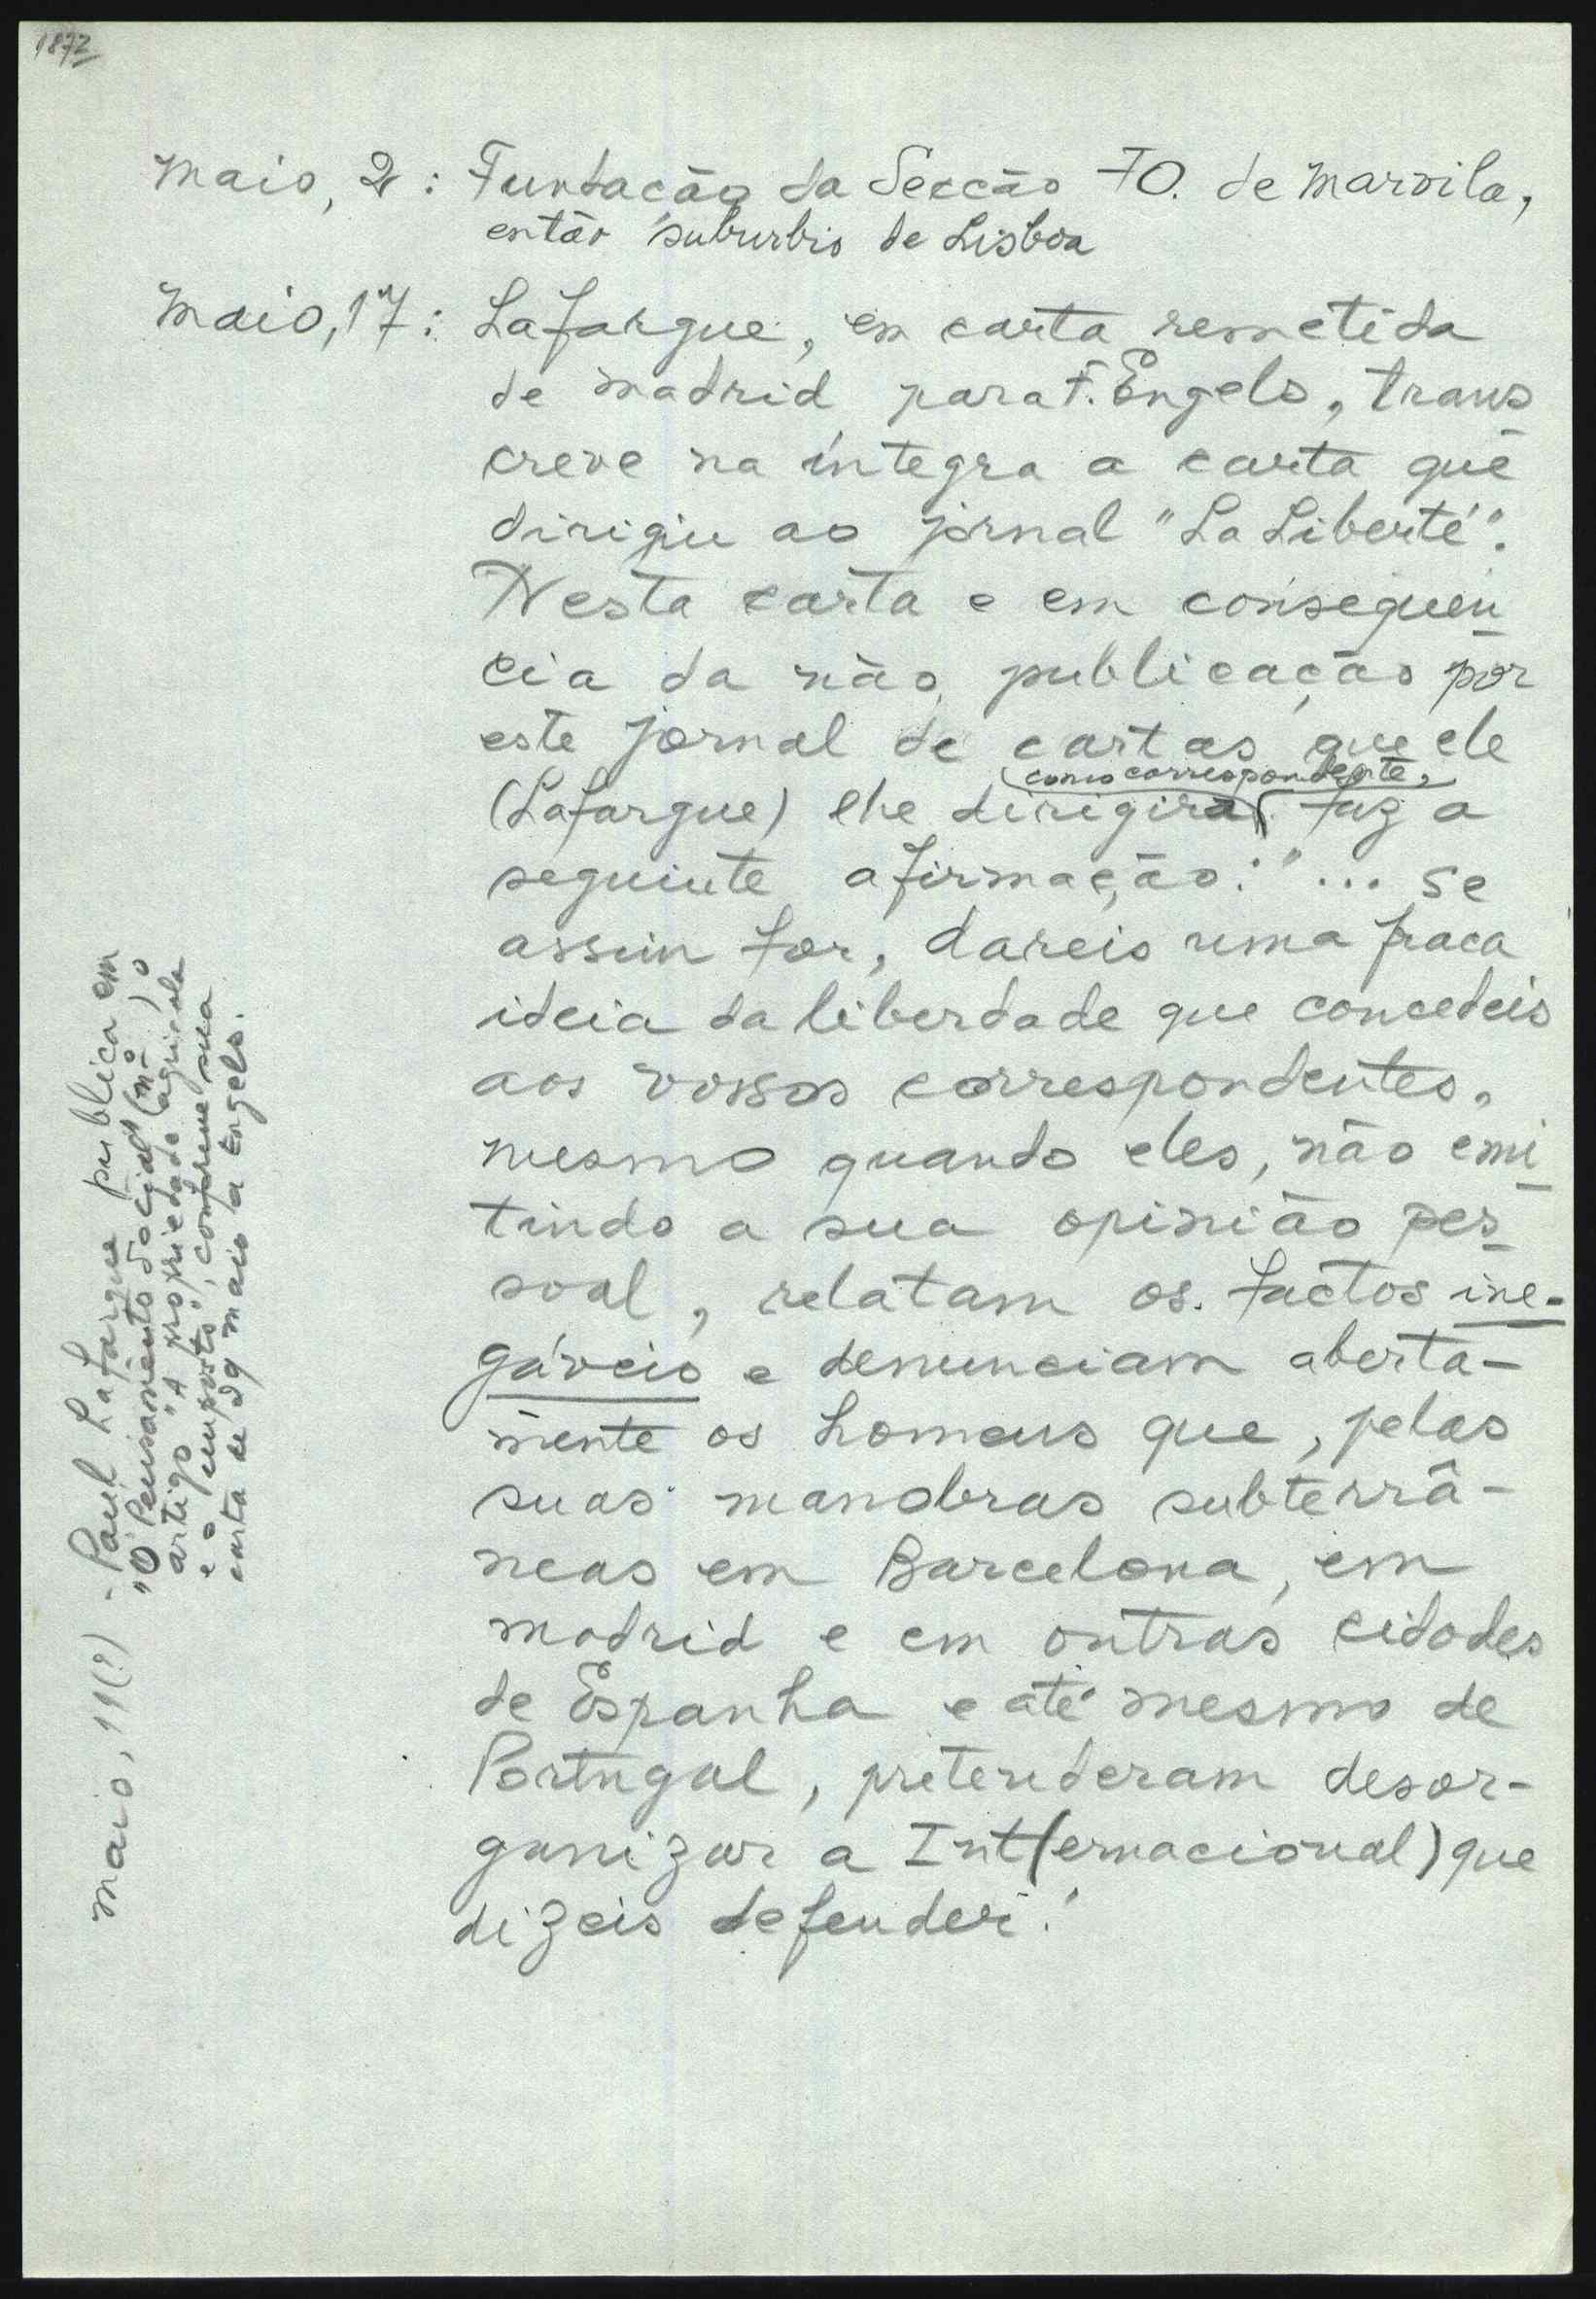 1872
Maio, 2: Fundação da Secção FO. de Marvila,
então suburbio de Lisboa
Maio, 17: Lafargue, em carta remetida
de Madrid para F. Engels, trans
creve na íntegra a carta que
dirigiu ao jornal "La Liberté".
Nesta carta e em consequên
cia da não publicação por
este jornal de cartas que ele
como correspondente,
(Lafargue) lhe dirigira faz a
seguinte afirmação: "... se
assim for, dareis uma fraca
ideia da liberdade que concedeis
aos vossos correspondentes,
mesmo quando eles, não emi
tindo a sua opinião pes
soal, relatam os factos ine-
gáveis e denunciam aberta-
mente os homens que, pelas
suas manobras subterrâ-
neas em Barcelona, em
Madrid e em outras cidades
de Espanha e até mesmo de
Portugal, pretenderam desor-
ganizar a Int(ernacional) que
dizeis defender."
Maio, 11(?) - Paul Lafargue publica em
"O Pensamento Social" (nº ) o
artigo "A propriedade agricola
e o imposto", conforme sua
carta de 29 maio a Engels.